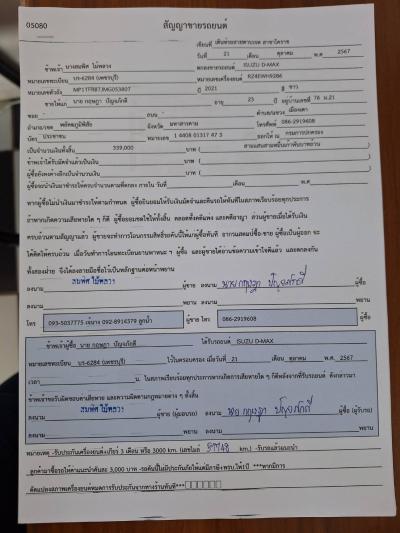 05080
สัญญาขายรถยนต์
เขียนที่ เต็นท์รถสายสตาร์เจต สาขาโคราช
วันที่ 21 เดือน ตุลาคม พ.ศ. 2567
ข้าพเจ้า นางสมพิศ ไม้หลวง ตกลงขายรถยนต์ ISUZU D-MAX
หมายเลขทะเบียน บร-6284 (เพชรบุรี) หมายเลขเครื่องยนต์
หมายเลขตัวถัง MP1TFR87JMG053807 ปี 2021 สี ขาว
ขายให้แก่ นาย กฤษฎา ปัญจภักดี อายุ 23 ปี อยู่บ้านเลขที่ 76 ม.21
ซอย - ถนน - ตำบล/แขวง เมืองเตา
อำเภอ/เขต พยัคฆภูมิพิสัย จังหวัด มหาสารคาม โทรศัพท์ 086-2919608
บัตร ประชาชน หมายเลข 1 4408 01317 47 3 ออกให้ ณ กรมการปกครอง
เป็นจำนวนเงินทั้งสิ้น 339,000 บาท ( สามแสนสามหมื่นเก้าพันบาทถ้วน )
ข้าพเจ้าได้รับมัดจำแล้วเป็นเงิน บาท ( )
ผู้ซื้อยังคงค้างอีกเป็นจำนวนเงิน บาท ( )
ผู้ซื้อจะนำเงินมาชำระให้ครบจำนวนตามที่ตกลง ภายใน วันที่ เดือน พ.ศ.
หากผู้ซื้อไม่นำเงินมาชำระให้ตามกำหนด ผู้ซื้อยินยอมให้ริบเงินมัดจำและคืนรถให้ทันทีในสภาพเรียบร้อยทุกประการ
ถ้าหากเกิดความเสียหายใด ๆ ก็ดี ผู้ซื้อยอมชดใช้ให้ทั้งสิ้น ตลอดทั้งคดีแพ่ง และคดีอาญา ส่วนผู้ขายเมื่อได้รับเงิน
ครบถ้วนตามสัญญาแล้ว ผู้ขายจะทำการโอนกรรมสิทธิ์รถคันนี้ให้แก่ผู้ซื้อทันที อากรแสตมป์ซื้อ-ขาย ผู้ซื้อเป็นผู้ออก จะ
ได้คิดให้ครบถ้วน เมื่อวันทำการโอนทะเบียนยานพาหนะ ฯ ผู้ซื้อ และผู้ขายได้อ่านข้อความเข้าใจดีแล้ว และตกลงกัน
ทั้งสองฝ่าย จึงได้ลงลายมือชื่อไว้เป็นหลักฐานต่อหน้าพยาน
ลงนาม สมพิศ ไม้หลวง ผู้ขาย ลงนาม นาย กฤษฎา ปัญจภักดี ผู้ซื้อ
ลงนาม พยาน ลงนาม พยาน
โทร 093-5037775 092-8914379 ลูกน้ำ ผู้ขาย โทร 086-2919608 ผู้ซื้อ
ข้าพเจ้าผู้ซื้อ นาย กฤษฎา ปัญจภักดี ได้รับรถยนต์ ISUZU D-MAX
หมายเลขทะเบียน บร-6284 (เพชรบุรี) ไว้ในครอบครอง เมื่อวันที่ 21 เดือน ตุลาคม พ.ศ. 2567
เวลา น. ในสภาพเรียบร้อยทุกประการหากเกิดการเสียหายใด ๆ ก็ดีหลังจากที่รับรถยนต์ ดังกล่าวมา
ข้าพเจ้าขอรับผิดชอบค่าเสียหาย และความผิดตามกฎหมายต่าง ๆ ทั้งสิ้น
ลงนาม สมพิศ ไม้หลวง ผู้ขาย (ผู้มอบรถ) ลงนาม นาย กฤษฎา ปัญจภักดี ผู้ซื้อ (ผู้รับรถ)
ลงนาม พยาน ลงนาม พยาน
หมายเหตุ -รับประกันเครื่องยนต์+เกียร์ 3 เดือน หรือ 3000 km. (เลขไมล์ km.) -รับรถแล้วแนะนำ
ลูกค้ามาซื้อรถให้ค่าแนะนำคันละ 3,000 บาท -รถคันนี้ไม่มีประกันภัยให้แต่มีภาษี+พรบ.ให้1ปี ***หากมีการ
ดัดแปลงสภาพเครื่องยนต์หมดการรับประกันจากทางร้านทันที***